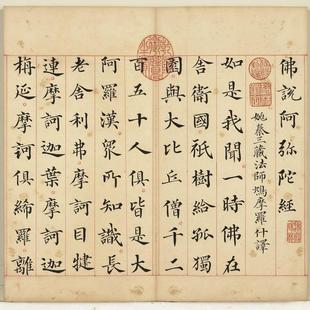 佛說阿弥陀經
姚秦三藏法師鳩摩羅什譯
如是我聞一時佛在
舍衛國祇樹給孤獨
園與大比丘僧千二
百五十人俱皆是大
阿羅漢眾所知識長
老舍利弗摩訶目犍
連摩訶迦葉摩訶迦
栴延摩訶俱絺羅離